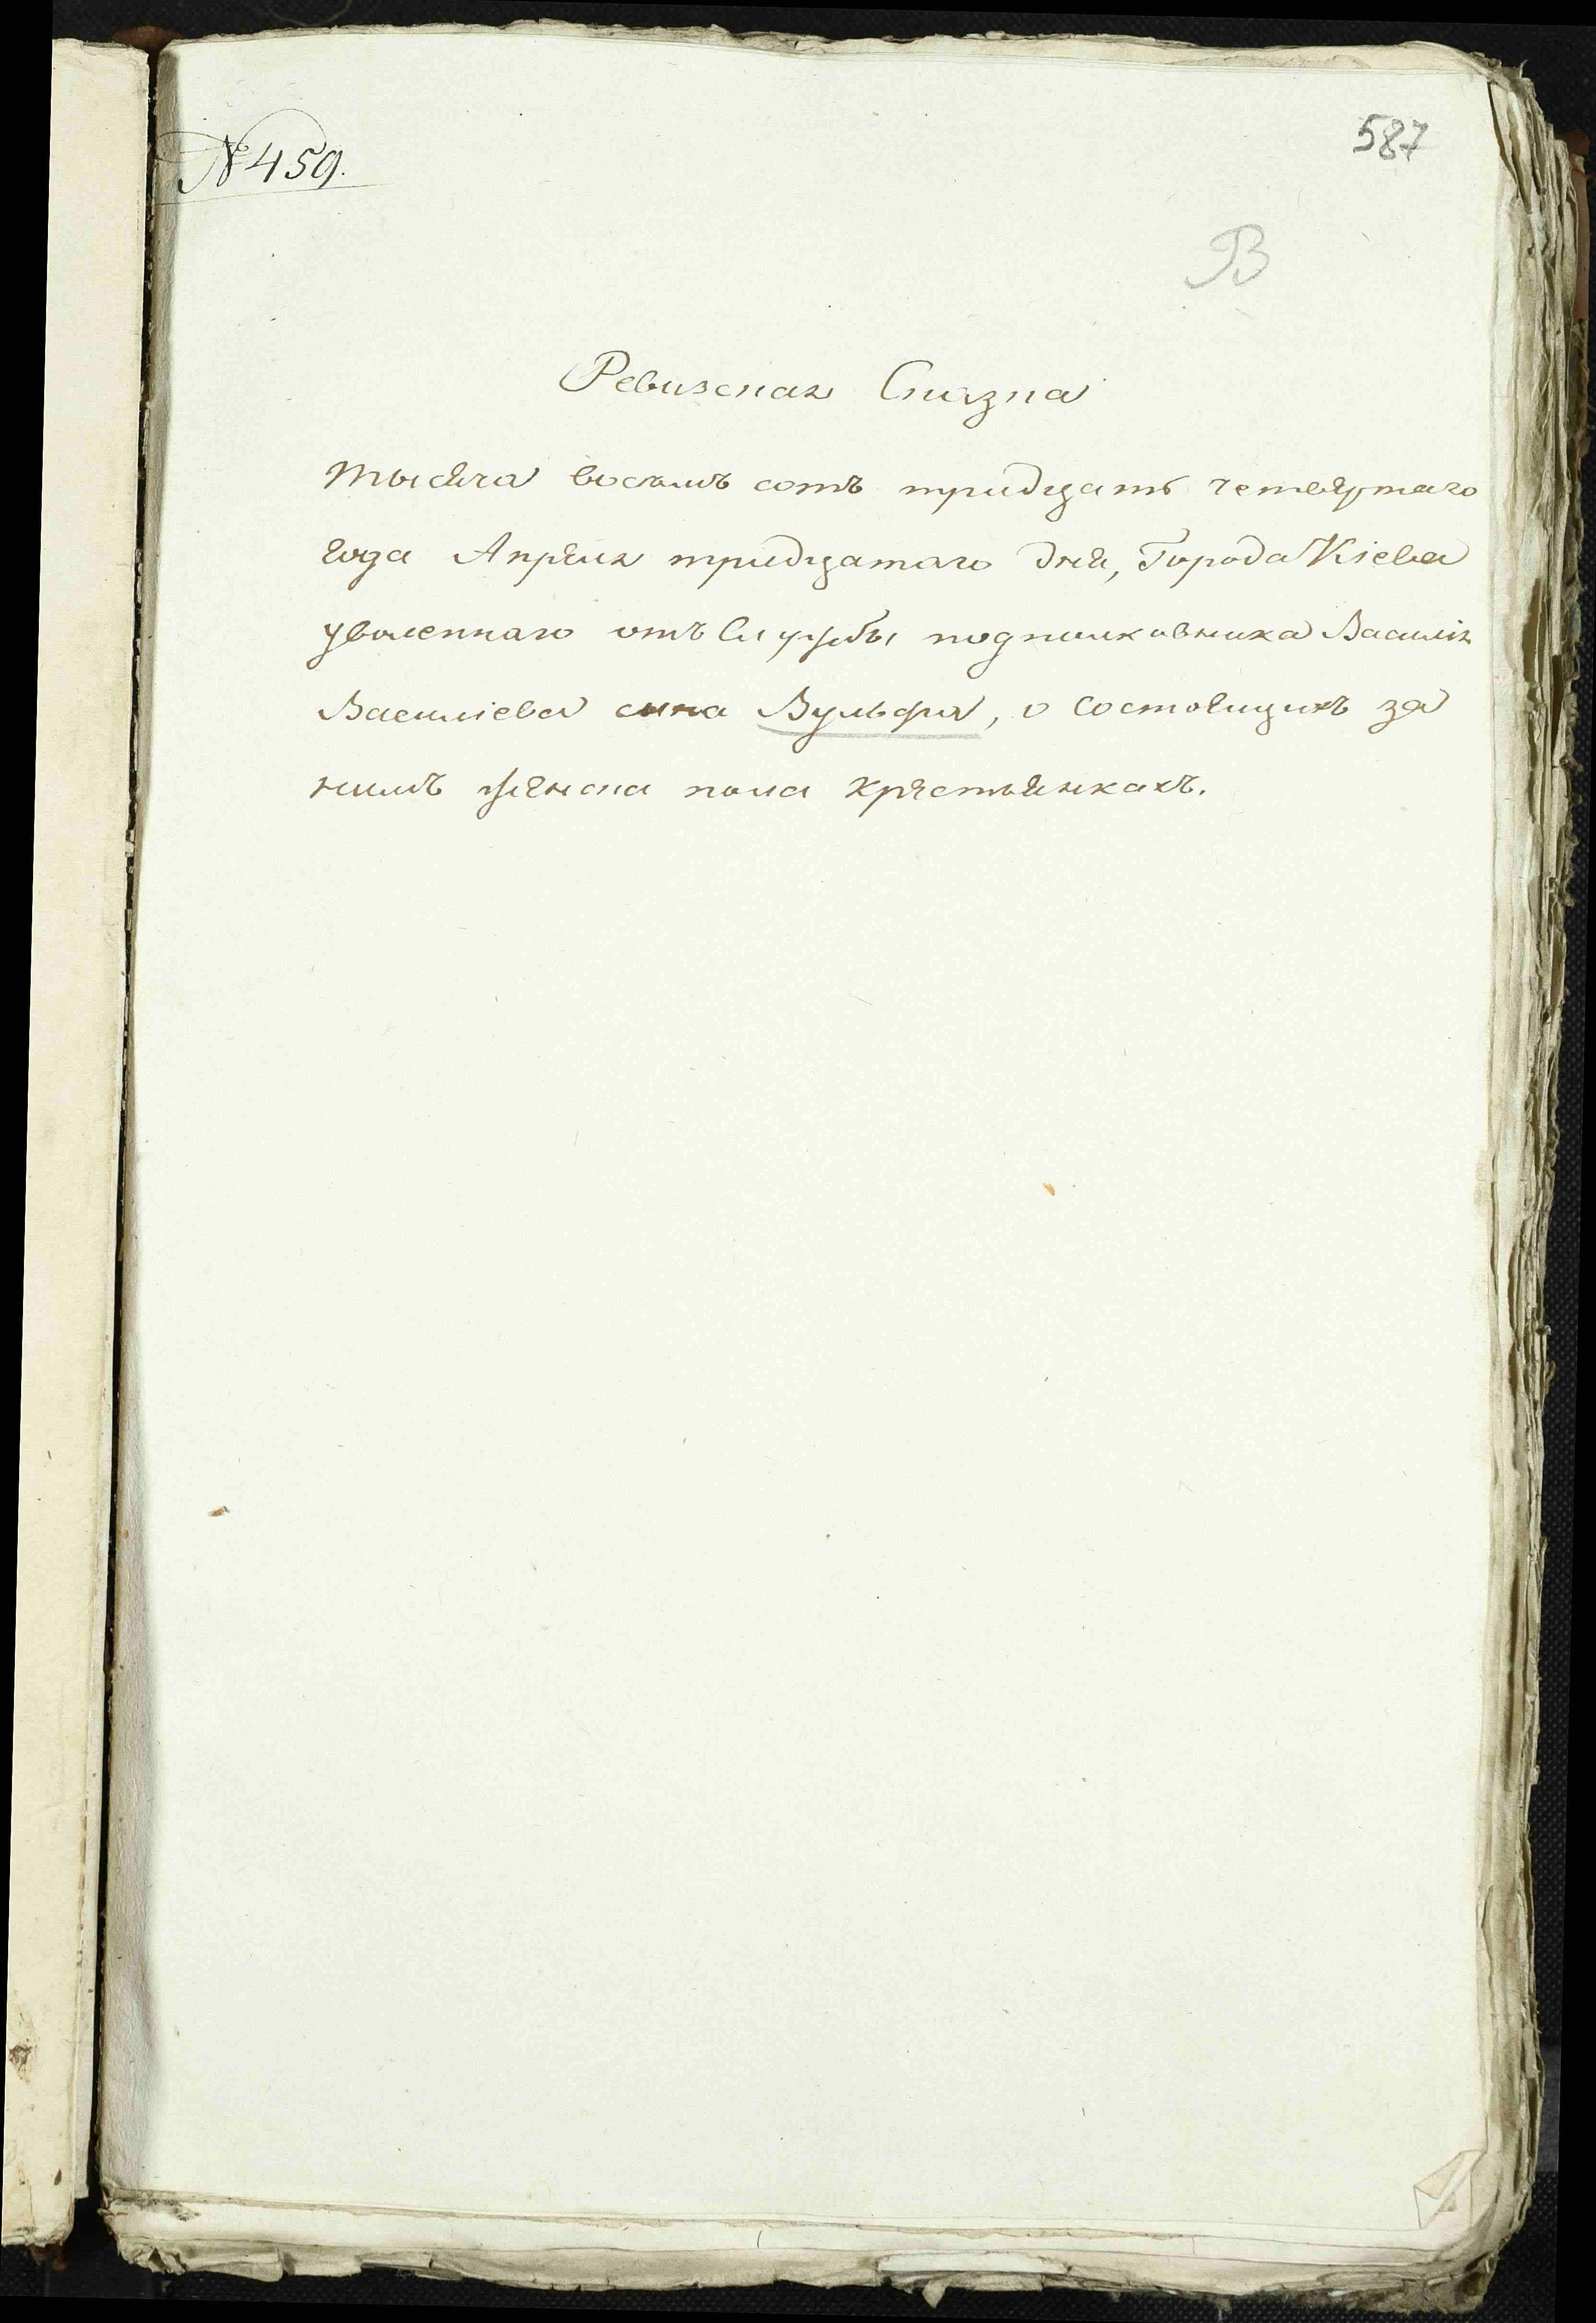 № 459.
587
В
Ревизская Сказка
тысяча восемь сотъ тридцать четвертаго
года Апреля тридцатаго дня, Города Кіева
уволеннаго отъ Службы подполковника Василія
Василіева сына Вульфа, о состоящихъ за
нимъ женска пола крестьянкахъ.